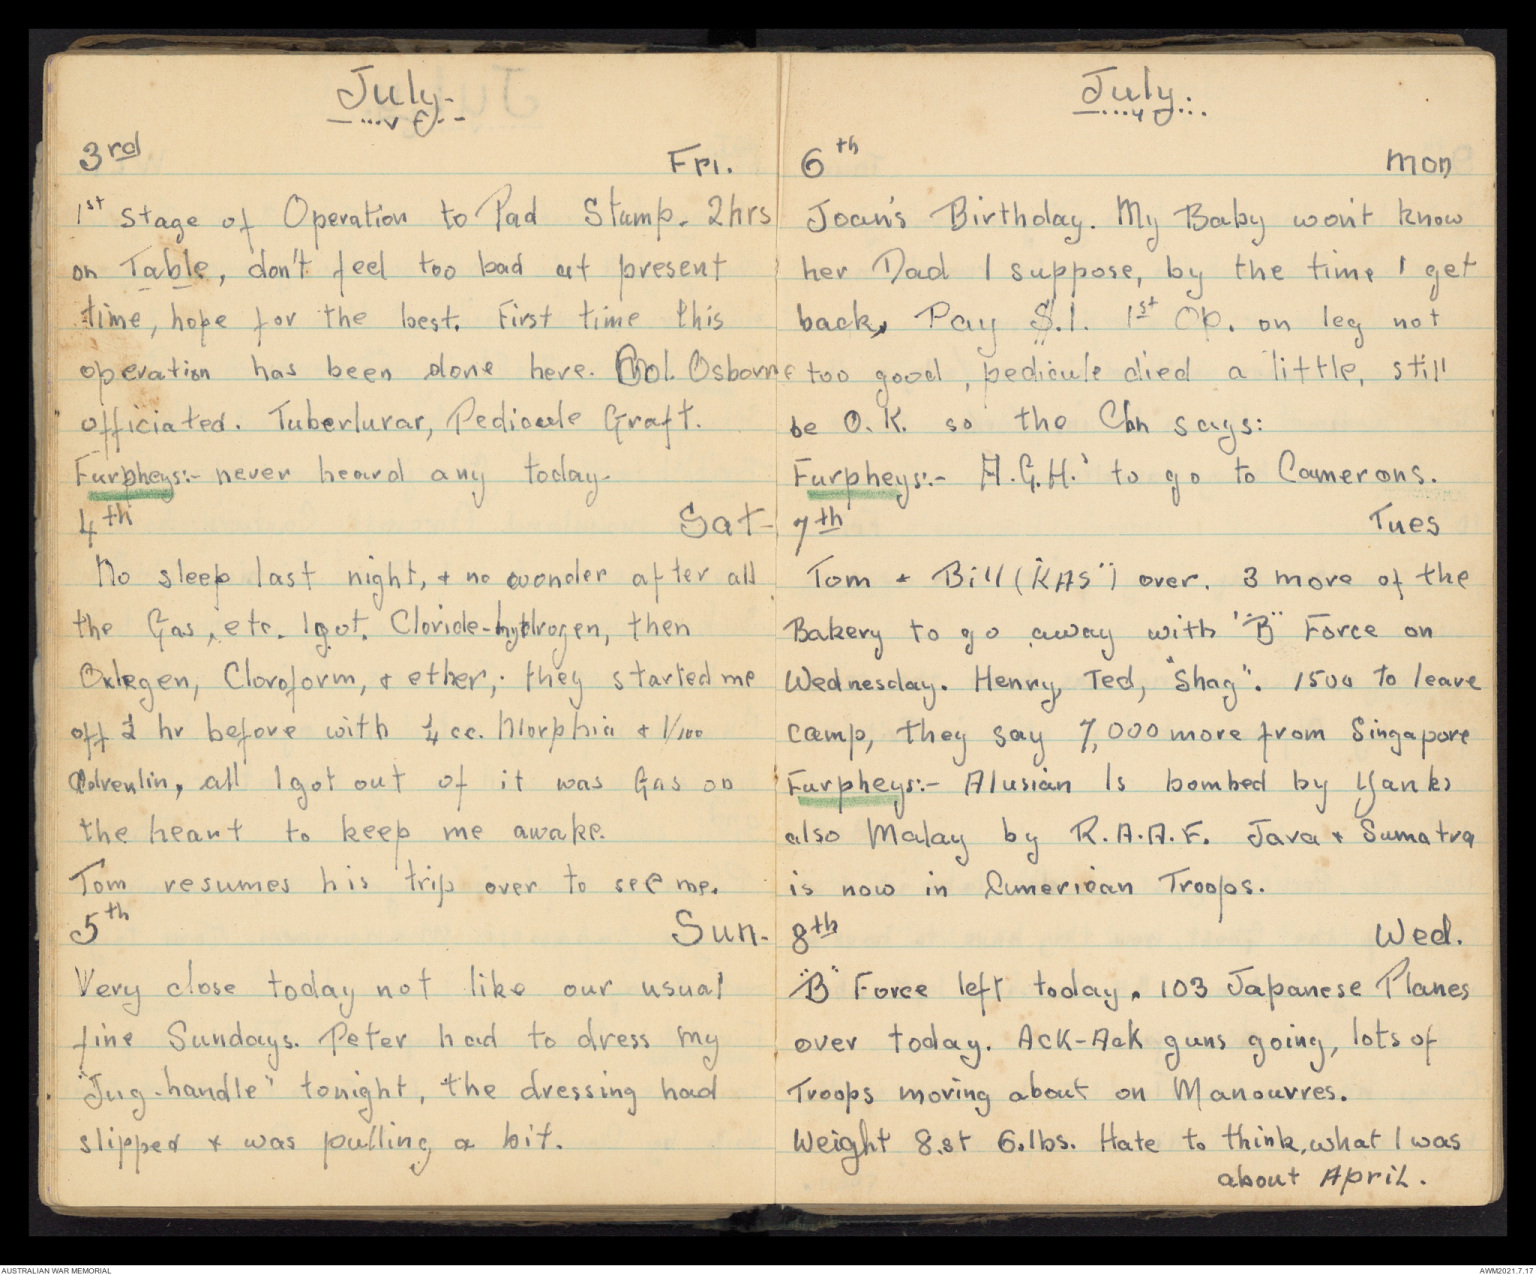 July.
3rd Fri.
1st stage of Operation to Pad Stump. 2hrs
on Table, don't feel too bad at present
time, hope for the best. First time this
operation has been done here. Col. Osborne
officiated. Tuberluvar, Pedicule Graft.
Furpheys:- never heard any today.
4th Sat.
No sleep last night, & no wonder after all
the Gas, etc. I got. Cloride-hydrogen, then
Oxlegen, Cloroform, & ether, they started me
off ½ hr before with ¼ cc. Morphia & 1/100
Adrenlin, all I got out of it was Gas on
the heart to keep me awake.
Tom resumes his trip over to see me.
5th Sun.
Very close today not like our usual
fine Sundays. Peter had to dress my
"Jug-handle" tonight, the dressing had
slipped & was pulling a bit.
July.
6th Mon
Joan's Birthday. My Baby won't know
her Dad I suppose, by the time I get
back, Pay $.1. 1st Op. on leg not
too good, pedicule died a little, still
be O.K. so the Cbn says:
Furpheys:- A.G.H.' to go to Camerons.
7th Tues
Tom & Bill ("KAS") over. 3 more of the
Bakery to go away with "B" Force on
Wednesday. Henry, Ted, "Shag". 1500 to leave
camp, they say 7,000 more from Singapore
Furpheys:- Alusian Is bombed by Yanks
also Malay by R.A.A.F. Java & Sumatra
is now in American Troops.
8th Wed.
"B" Force left today. 103 Japanese Planes
over today. Ack-Ack guns going, lots of
Troops moving about on Manouvres.
Weight 8.st 6.lbs. Hate to think, what I was
about April.
AUSTRALIAN WAR MEMORIAL AWM2021.7.17